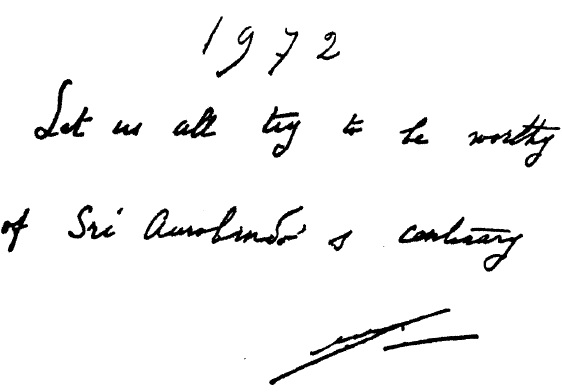 1972
Let us all try to be worthy
of Sri Aurobindo's centenary